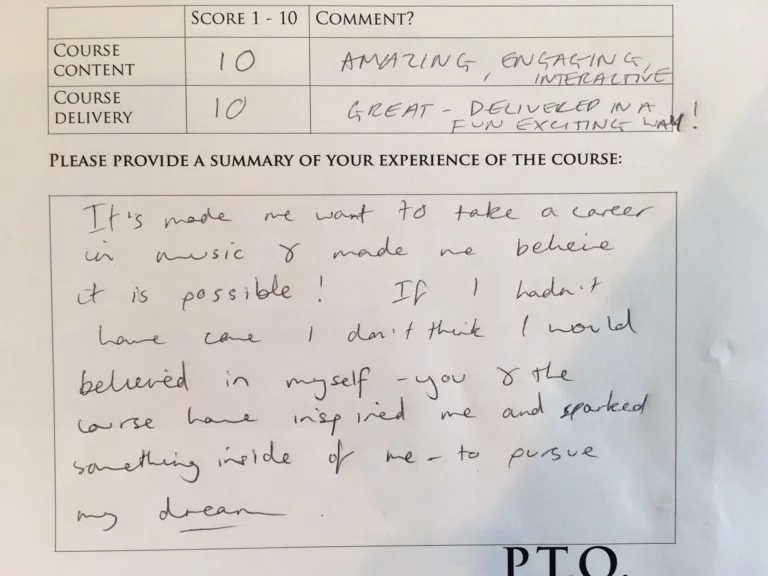 SCORE 1 - 10 COMMENT?
COURSE CONTENT 10 AMAZING, ENGAGING, INTERACTIVE
COURSE DELIVERY 10 GREAT - DELIVERED IN A FUN EXCITING WAY!
PLEASE PROVIDE A SUMMARY OF YOUR EXPERIENCE OF THE COURSE:
It's made me want to take a career
in music & made me believe
it is possible! If I hadn't
have come I don't think I would
believed in myself - you & the
course have inspired me and sparked
something inside of me - to pursue
my dream.
P.T.O.